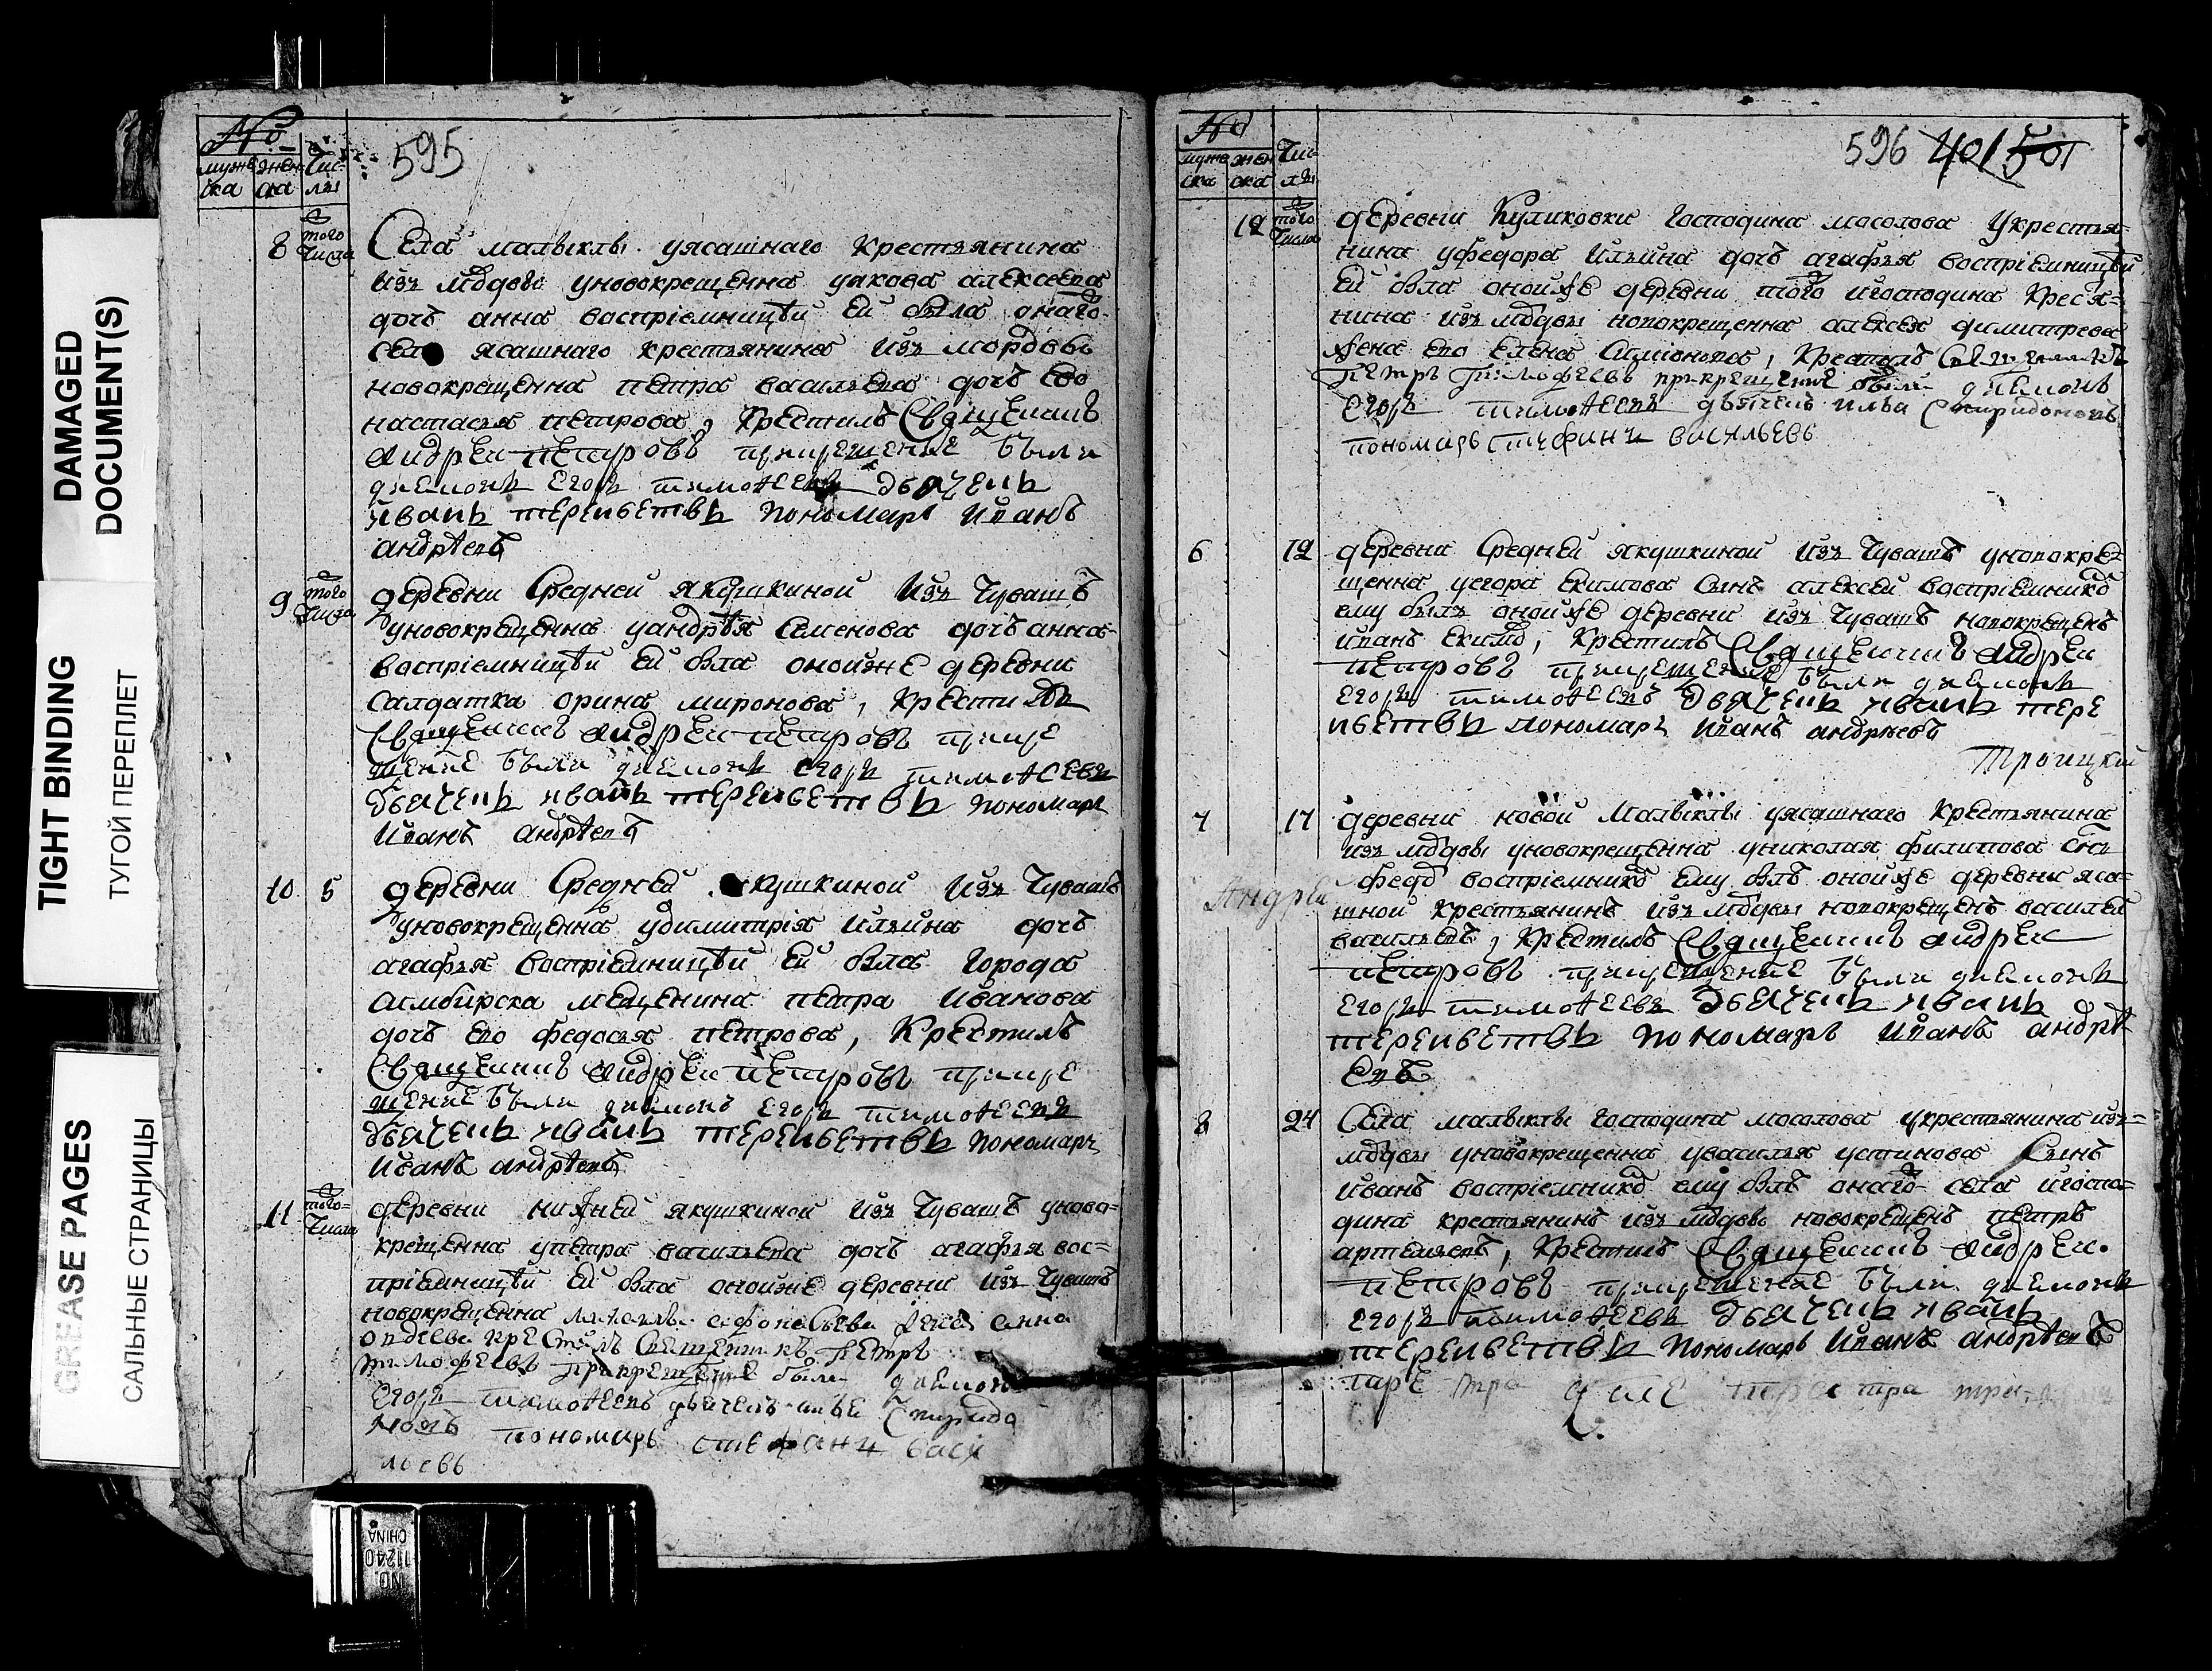 DAMAGED
DOCUMENT(S)
TIGHT BINDING
ТУГОЙ ПЕРЕПЛЕТ
GREASE PAGES
САЛЬНЫЕ СТРАНИЦЫ
№
муже ска жен ска Чис лы
595
8 того Числа Села малыклы уясашнаго крестьянина
изъ мордвы уновокрещенна уякова алексеева
дочь анна воспріемницей ей была онаго
села ясашнаго крестьянина изъ мордвы
новокрещенна петра васильева дочь ево
настасья петрова, крестилъ Священникъ
андреи петровъ прикрещение были
диаконъ егоръ тимофеевъ дьячекъ
иванъ терентьетвъ пономарь иванъ
андреевъ
9 того Числа деревни Средней якушкиной изъ Чувашъ
уновокрещенна уандрея Семенова дочь анна
воспріемницей ей была онойже деревни
салдатка орина миронова, крестилъ
Священникъ андреи петровъ прикре
щение были диаконъ егоръ тимофеевъ
дьячекъ иванъ терентьетвъ пономарь
иванъ андреевъ
10 5 деревни Средней якушкиной изъ Чувашъ
уновокрещенна удимитрія ильина дочь
агафья воспріемницей ей была города
симбирска мещенина петра иванова
дочь ево федосья петрова, крестилъ
Священникъ андреи петровъ прикре
щение были диаконъ егоръ тимофеевъ
дьячекъ иванъ терентьетвъ пономарь
иванъ андреевъ
11 того Числа деревни нижней якушкиной изъ Чувашъ уново=
крещенна упетра васильева дочь агафья вос=
пріемницей ей была онойже деревни изъ Чувашъ
новокрещенна афонасьева жена анна
крестилъ Священникъ петръ
тимофеевъ прикрещение были диаконъ
егоръ тимофеевъ дьячекъ илья Спиридо
новъ пономарь стефанъ васи
льевъ
№
муже ска жен ска Чис лы
596 401 501
12 того Числа деревни Куликовки господина масолова укрестья=
нина уфедора ильина дочь агафья воспріемницей
ей была онойже деревни того игосподина крестья=
нина изъ мордвы новокрещенна алексея димитрева
жена ево елена Симіонова, крестилъ Священникъ
петръ тимофеевъ прикрещение были диаконъ
егоръ тимофеевъ дьячекъ илья Спиридоновъ
пономарь стефанъ васильевъ
6 12 деревни Средней якушкиной изъ Чувашъ уновокре=
щенна уегора екимова Сынъ алексей воспріемникъ
ему былъ онойже деревни изъ Чувашъ новокрещенъ
иванъ екимовъ, крестилъ Священникъ андреи
петровъ прикрещение были диаконъ
егоръ тимофеевъ дьячекъ иванъ тере
нтьетвъ пономарь иванъ андреевъ
Троицкий
7 17 деревни новой Малыклы уясашнаго крестьянина
изъ мордвы уновокрещенна униколая филипова Сынъ
федоръ воспріемникъ ему былъ онойже деревни яса=
Андрей
шной крестьянинъ изъ мордвы новокрещенъ василей
васильевъ, крестилъ Священникъ андреи
петровъ прикрещение были диаконъ
егоръ тимофеевъ дьячекъ иванъ
терентьетвъ пономарь иванъ андре
евъ
8 24 Села малыклы господина мосолова укрестьянина изъ=
мордвы уновокрещенна увасилья устинова Сынъ
иванъ воспріемникъ ему былъ онаго села игоспо=
дина крестьянинъ изъ мордвы новокрещенъ петръ
артемьевъ, крестилъ Священникъ андреи
петровъ прикрещение были диаконъ
егоръ тимофеевъ дьячекъ иванъ
терентьетвъ пономарь иванъ андреевъ
NO. 11240
CHINA